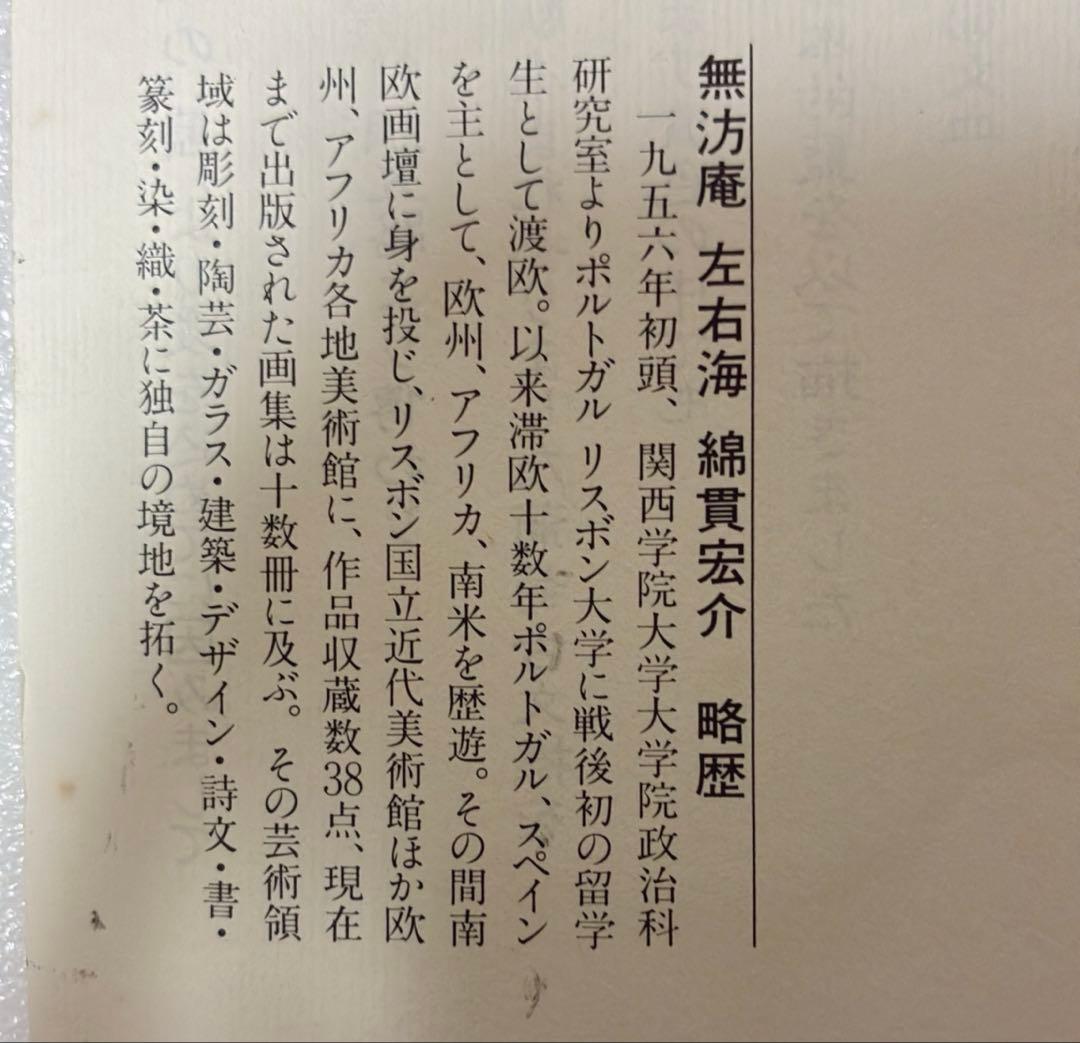 無汸庵 左右海 綿貫宏介 略歴
一九五六年初頭、関西学院大学大学院政治科
研究室よりポルトガル リスボン大学に戦後初の留学
生として渡欧。以来滞欧十数年ポルトガル、スペイン
を主として、欧州、アフリカ、南米を歴遊。その間南
欧画壇に身を投じ、リスボン国立近代美術館ほか欧
州、アフリカ各地美術館に、作品収蔵数38点、現在
まで出版された画集は十数冊に及ぶ。その芸術領
域は彫刻・陶芸・ガラス・建築・デザイン・詩文・書・
篆刻・染・織・茶に独自の境地を拓く。